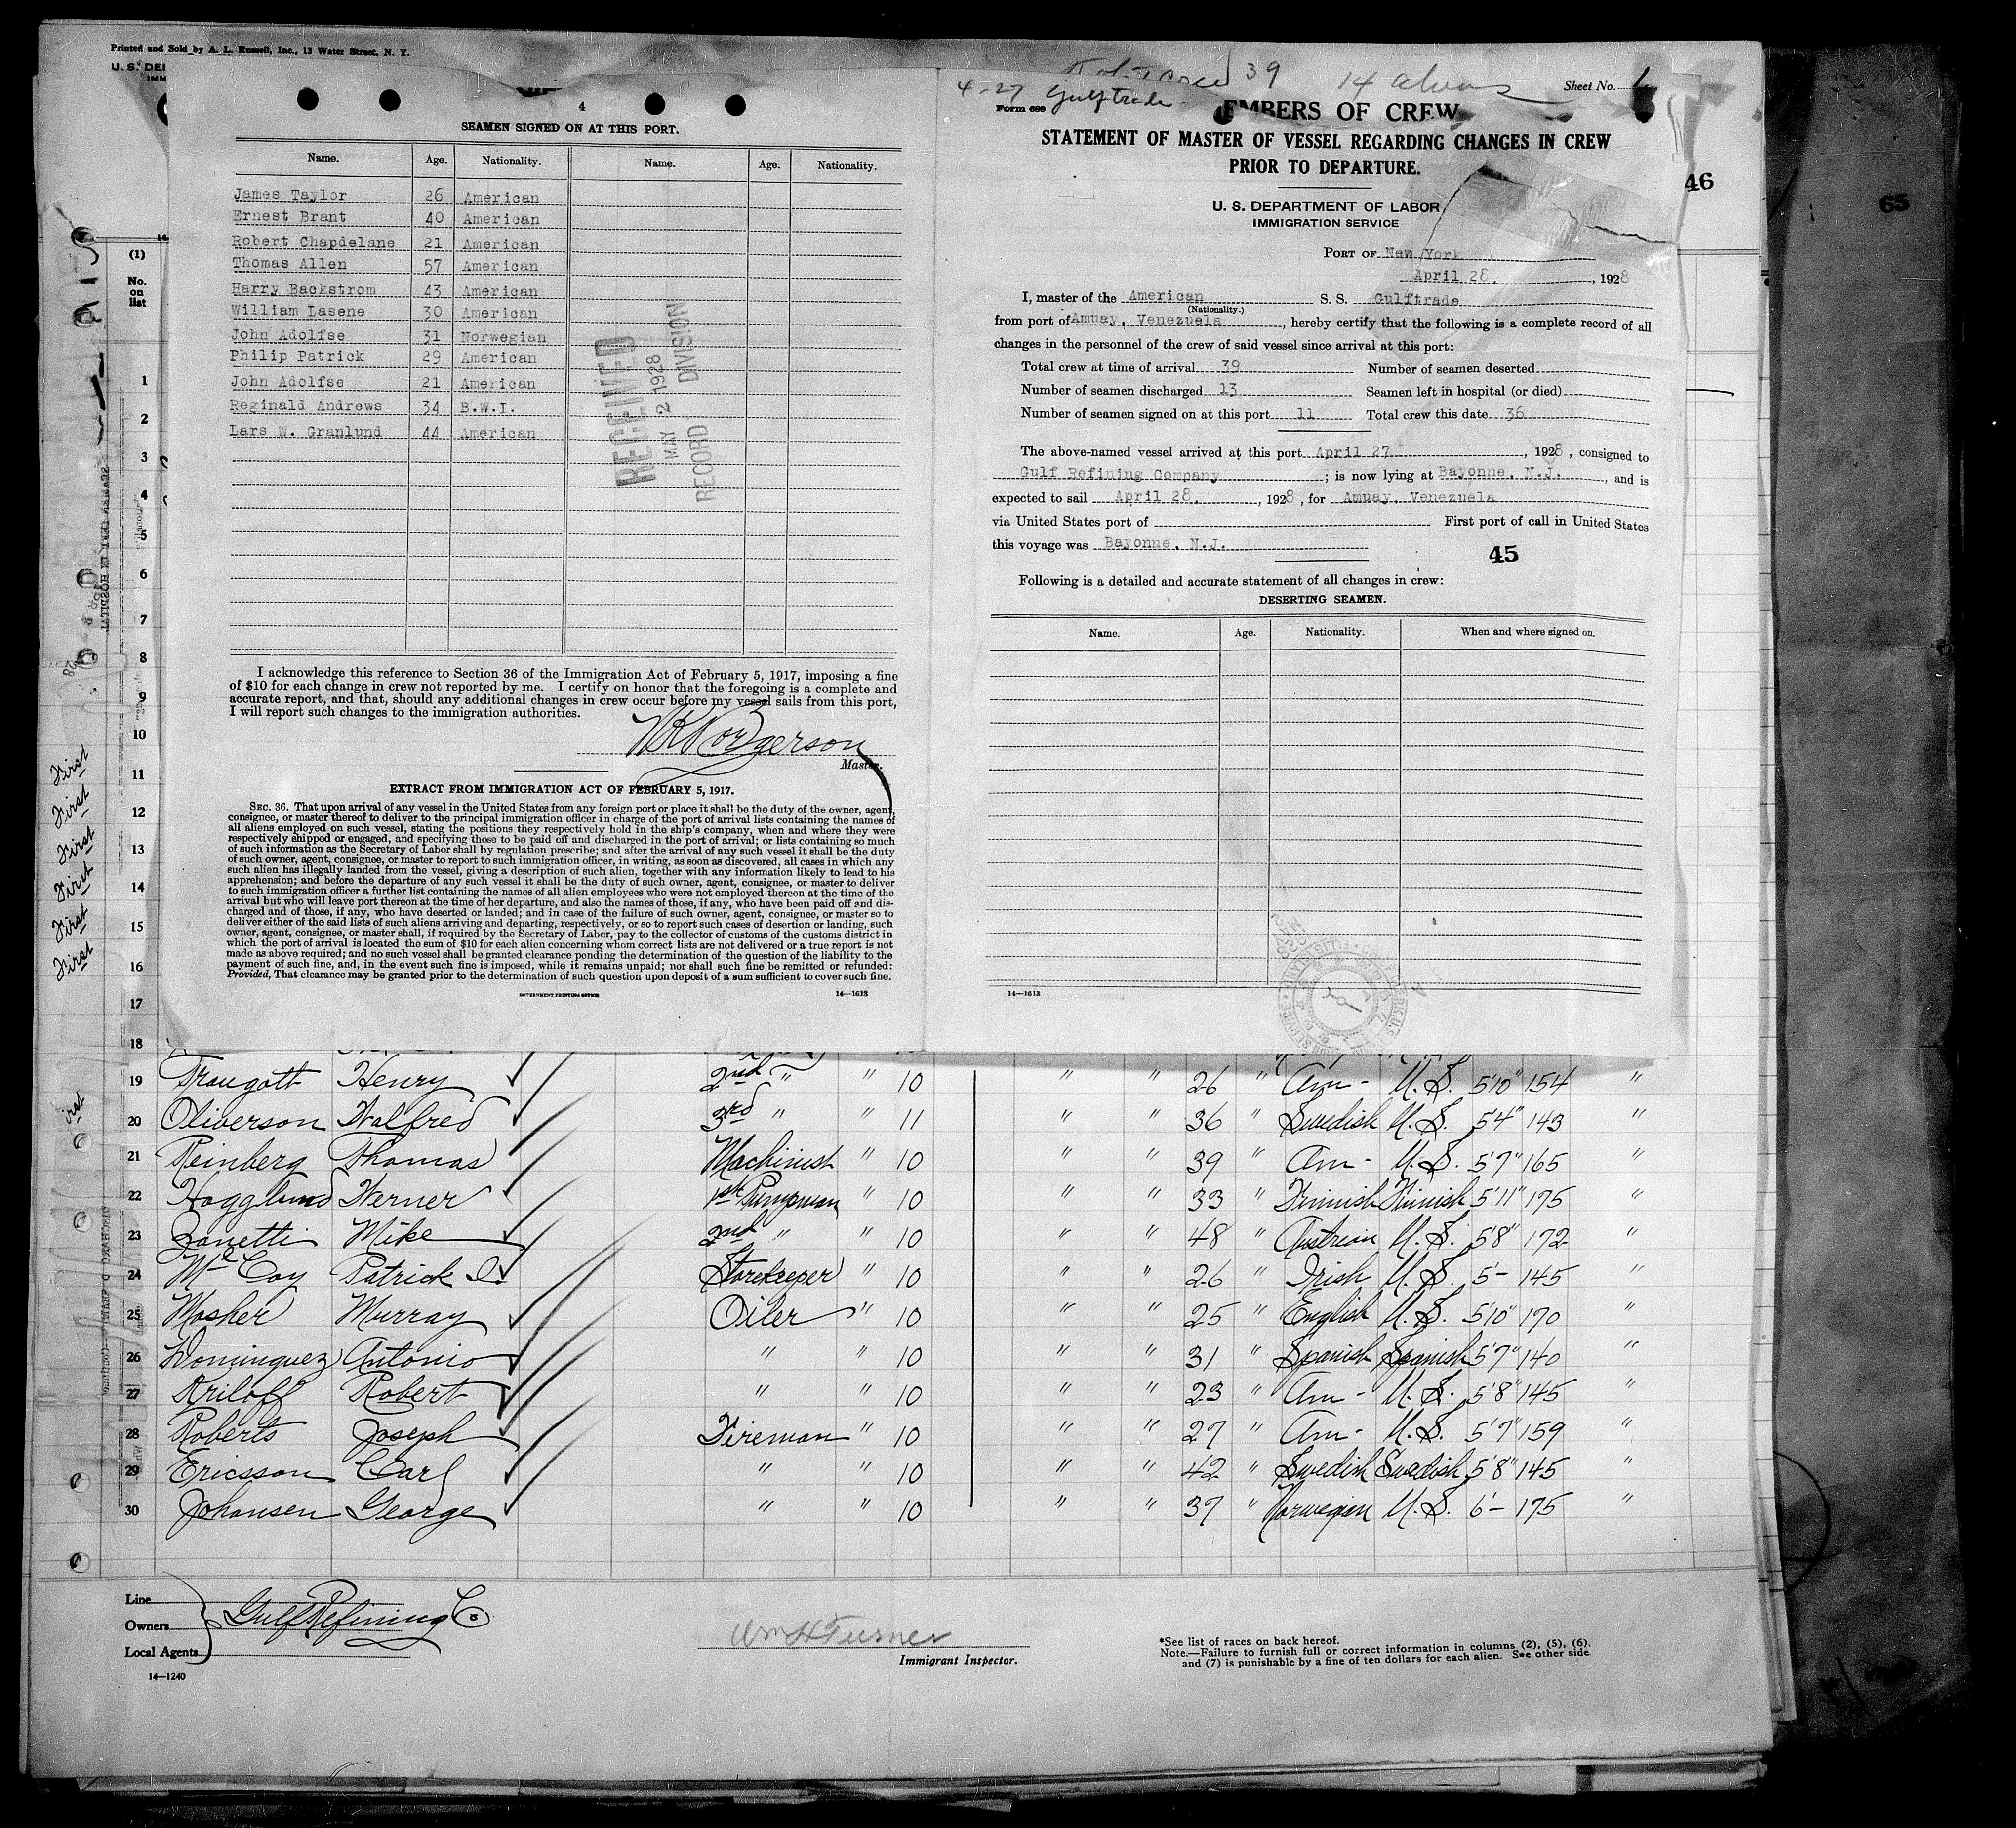 Printed and Sold by A. L. Russell, Inc., 13 Water Street, N. Y.
U. S. DEI
IMM
4
SEAMEN SIGNED ON AT THIS PORT.
Name. Age. Nationality. Name. Age. Nationality.
James Taylor 26 American
Ernest Brant 40 American
Robert Chapdelane 21 American
Thomas Allen 57 American
Harry Backstrom 43 American
William Lasene 30 American
John Adolfse 31 Norwegian
Philip Patrick 29 American
John Adolfse 21 American
Reginald Andrews 34 B.W.I.
Lars W. Granlund 44 American
RECEIVED
MAY 2 1928
RECORD DIVISION
I acknowledge this reference to Section 36 of the Immigration Act of February 5, 1917, imposing a fine
of $10 for each change in crew not reported by me. I certify on honor that the foregoing is a complete and
accurate report, and that, should any additional changes in crew occur before my vessel sails from this port,
I will report such changes to the immigration authorities.
Master.
EXTRACT FROM IMMIGRATION ACT OF FEBRUARY 5, 1917.
SEC. 36. That upon arrival of any vessel in the United States from any foreign port or place it shall be the duty of the owner, agent,
consignee, or master thereof to deliver to the principal immigration officer in charge of the port of arrival lists containing the names of
all aliens employed on such vessel, stating the positions they respectively hold in the ship's company, when and where they were
respectively shipped or engaged, and specifying those to be paid off and discharged in the port of arrival; or lists containing so much
of such information as the Secretary of Labor shall by regulation prescribe; and after the arrival of any such vessel it shall be the duty
of such owner, agent, consignee, or master to report to such immigration officer, in writing, as soon as discovered, all cases in which any
such alien has illegally landed from the vessel, giving a description of such alien, together with any information likely to lead to his
apprehension; and before the departure of any such vessel it shall be the duty of such owner, agent, consignee, or master to deliver
to such immigration officer a further list containing the names of all alien employees who were not employed thereon at the time of the
arrival but who will leave port thereon at the time of her departure, and also the names of those, if any, who have been paid off and dis-
charged and of those, if any, who have deserted or landed; and in case of the failure of such owner, agent, consignee, or master so to
deliver either of the said lists of such aliens arriving and departing, respectively, or so to report such cases of desertion or landing, such
owner, agent, consignee, or master shall, if required by the Secretary of Labor, pay to the collector of customs of the customs district in
which the port of arrival is located the sum of $10 for each alien concerning whom correct lists are not delivered or a true report is not
made as above required; and no such vessel shall be granted clearance pending the determination of the question of the liability to the
payment of such fine, and, in the event such fine is imposed, while it remains unpaid; nor shall such fine be remitted or refunded:
Provided, That clearance may be granted prior to the determination of such question upon deposit of a sum sufficient to cover such fine.
GOVERNMENT PRINTING OFFICE 14—1613
39 14 aliens Sheet No. 1
4-27 Gulftrade
Form 689 EMBERS OF CREW
STATEMENT OF MASTER OF VESSEL REGARDING CHANGES IN CREW
PRIOR TO DEPARTURE.
46
65
U. S. DEPARTMENT OF LABOR
IMMIGRATION SERVICE
PORT OF New York
April 28, , 1928
I, master of the American S. S. Gulftrade
(Nationality.)
from port of Amuay, Venezuela , hereby certify that the following is a complete record of all
changes in the personnel of the crew of said vessel since arrival at this port:
Total crew at time of arrival 39 Number of seamen deserted
Number of seamen discharged 13 Seamen left in hospital (or died)
Number of seamen signed on at this port 11 Total crew this date 36
The above-named vessel arrived at this port April 27 , 1928 , consigned to
Gulf Refining Company ; is now lying at Bayonne, N.J. , and is
expected to sail April 28, , 1928 , for Amuay, Venezuela
via United States port of First port of call in United States
this voyage was Bayonne, N.J.
45
Following is a detailed and accurate statement of all changes in crew:
DESERTING SEAMEN.
Name. Age. Nationality. When and where signed on.
14—1613
(1)
No.
on
list
1
2
3
4
5
6
7
8
9
10
First 11
First 12
First 13
First 14
First 15
First 16
17
18
19 Traugott Henry 2nd " " 10 " " 26 " Am - U.S. 5'10" 154 "
20 Oliverson Halfred 3rd " " 11 " " 36 " Swedish U.S. 5'4" 143 "
21 Reinberg Thomas Machinist " 10 " " 39 " Am - U.S. 5'7" 165 "
22 Hogglund Werner 1st Pumpman " 10 " " 33 " Finnish Finnish 5'11" 175 "
23 Zanetti Mike 2nd " " 10 " " 48 " Austrian U.S. 5'8" 172 "
24 McCoy Patrick I. Storekeeper " 10 " " 26 " Irish U.S. 5'- 145 "
25 Mosher Murray Oiler " 10 " " 25 " English U.S. 5'10" 170 "
26 Dominguez Antonio " " 10 " " 31 " Spanish Spanish 5'7" 140 "
27 Kriloff Robert " " 10 " " 23 " Am - U.S. 5'8" 145 "
28 Roberts Joseph Fireman " 10 " " 27 " Am - U.S. 5'7" 159 "
29 Ericsson Carl " " 10 " " 42 " Swedish Swedish 5'8" 145 "
30 Johansen George " " 10 " " 37 " Norwegian U.S. 6'- 175 "
Line
Owners Gulf Refining Co
Local Agents
14—1240
Wm H Turner
Immigrant Inspector.
*See list of races on back hereof.
Note.—Failure to furnish full or correct information in columns (2), (5), (6),
and (7) is punishable by a fine of ten dollars for each alien. See other side